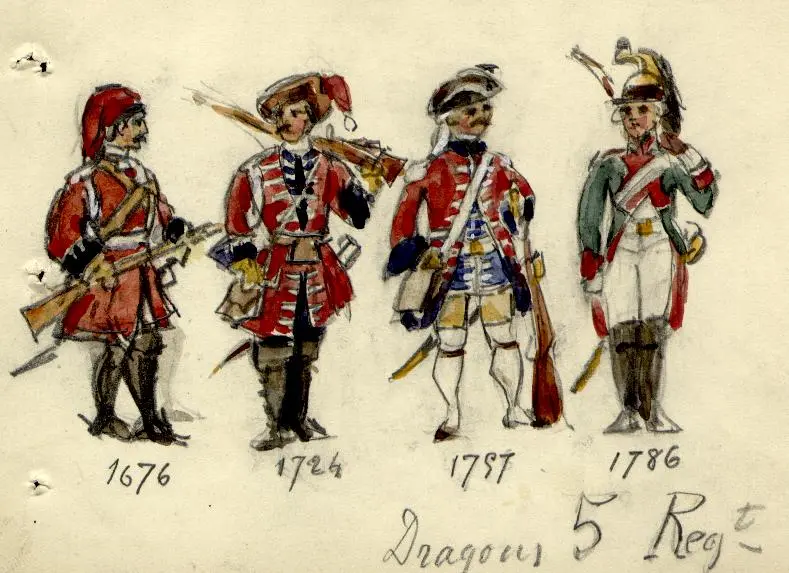 1676 1724 1757 1786
Dragons 5 Regt